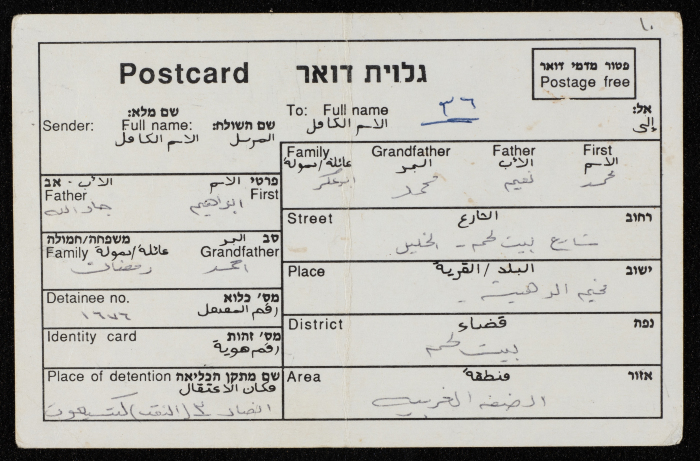 ١٠
Postcard גלוית דואר
פטור מדמי דואר
Postage free
שם מלא:
Sender: Full name: שם השולח:
الاسم الكامل المرسل
To: Full name ٣٦ אל:
الاسم الكامل إلى
Family Grandfather Father First
עائلة/حمولة الجد الأب الاسم
محمد نعيم محمد
פרטי الاسم الأب - אב
Father First
ابراهيم جاد الله
סב الجد משפחה/חמולה
Family عائلة/حمولة Grandfather
احمد رمضان
Detainee no. מס' כלוא
رقم المعتقل
١٦٧٦
Identity card מס' זהות
رقم هوية
Place of detention שם מתקן הכליאה
مكان الاعتقال
انصار ٣ (النقب) كتسيعوت
Street الشارع רחוב
شارع بيت لحم - الخليل
Place البلد / القرية ישוב
مخيم الدهيشة -
District قضاء נפה
بيت لحم
Area منطقة אזור
الضفة الغربية